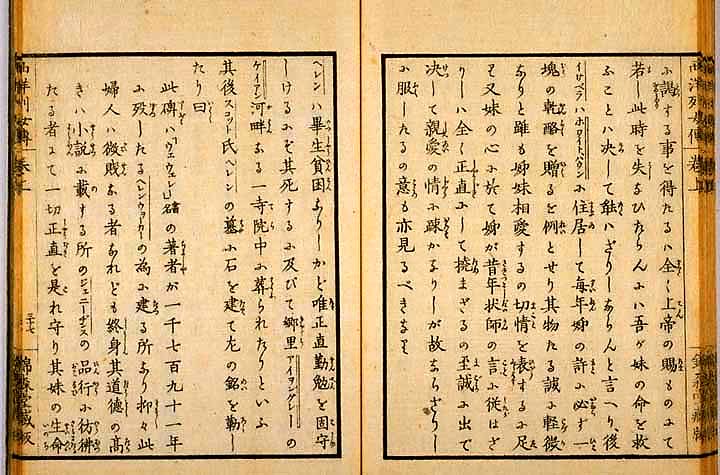 西洋列女傳 卷上
に謁する事を得たるハ全く上帝の賜ものにて
若し此時を失なひたらんにハ吾が妹の命を救
ふことハ決して能ハざりしならんと言へり後
イサベラハホワイトハウンに住居して毎年姉の許に必ず一
塊の乾酪を贈るを例とせり其物たる誠に輕微
なりと雖も姉妹相愛するの切情を表するに足
る又妹の心に於て姉が昔年状師の言に從はざ
りしハ全く正直にして撓まざるの至誠に出で
決して親愛の情に疎かなりしが故ならざりし
に服したるの意も亦見るべきなり
ヘレンハ畢生貧困なりしかど唯正直勤勉を固守
しけるにぞ其死するに及びて郷里アイヲングレーの
ケイアン河畔なる一寺院中に葬られたりといふ
其後スコット氏ヘレンの墓に石を建て左の銘を勒し
たり曰
此碑ハウェウェルレー稿の著者が一千七百九十一年
に歿したるヘレンウォーカーの為に建る所なり抑々此
婦人ハ微賤なる者なれども終身其道德の高
きハ小説に載する所のジェニーヂンスの品行に彷彿
たる者にて一切正直を是れ守り其妹の生命
西洋列女傳 卷上
三十七
錦森堂藏版